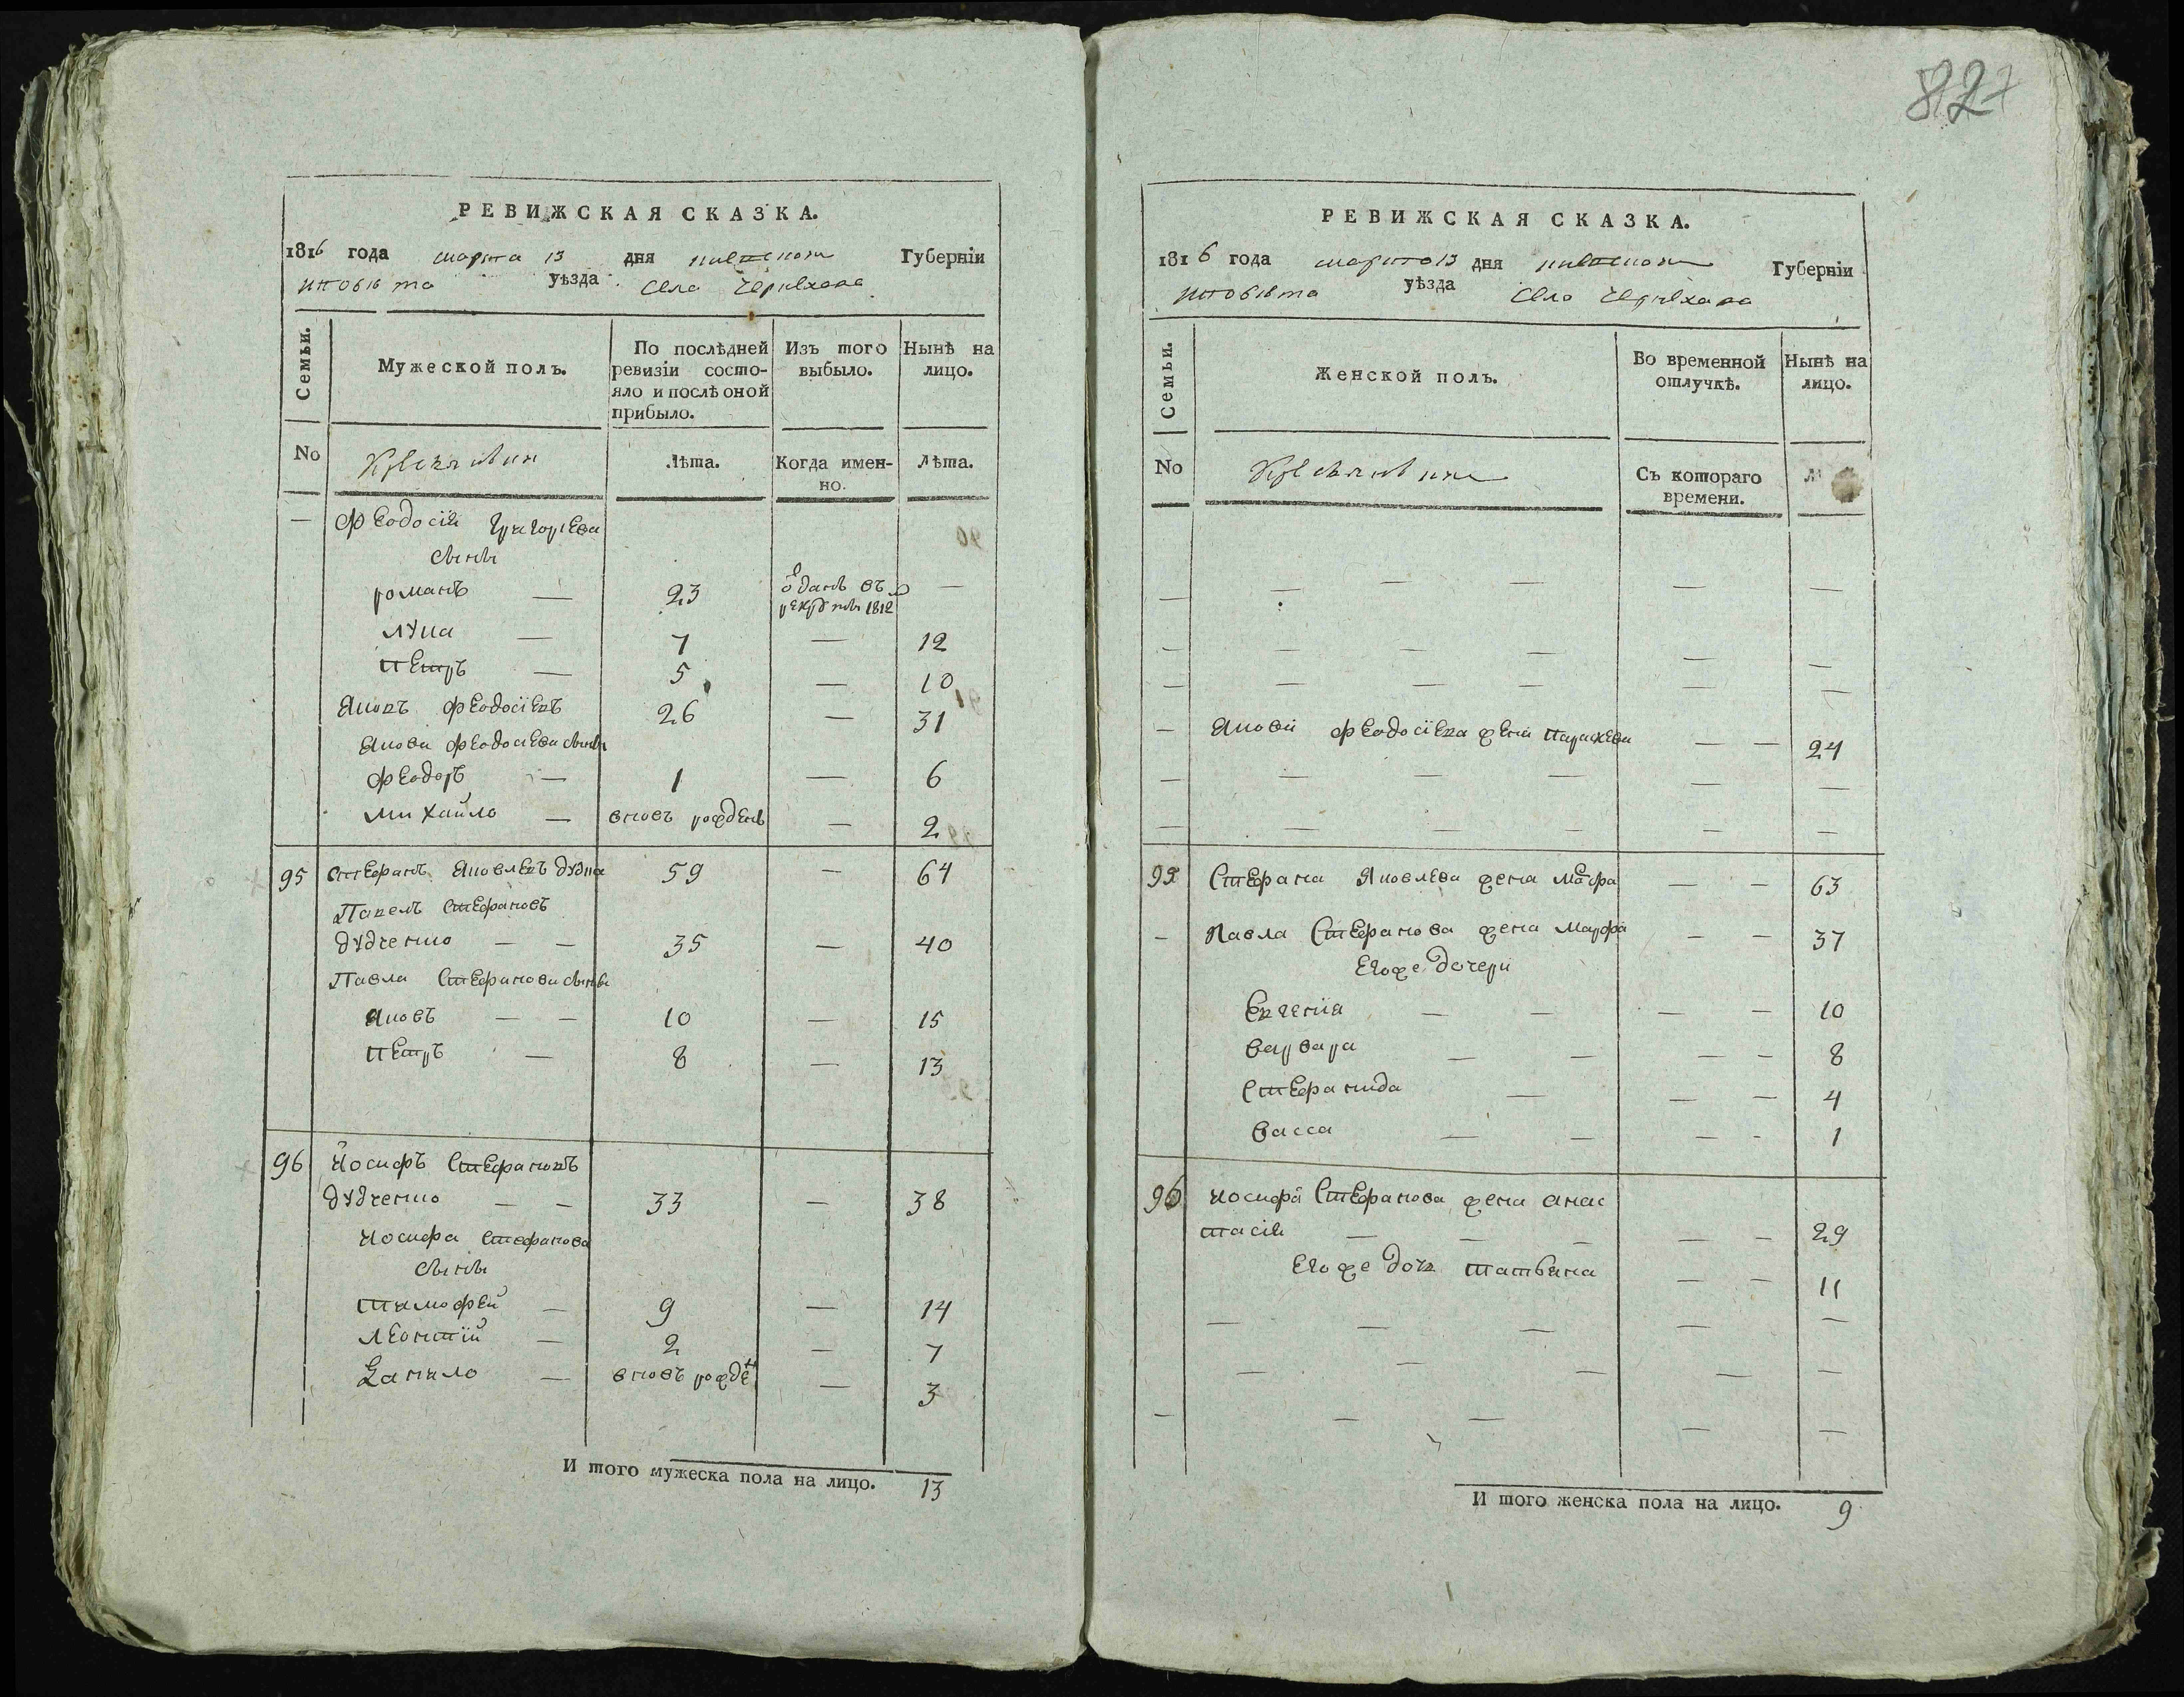 827
РЕВИЖСКАЯ СКАЗКА.
1816 года марта 13 дня киевской Губерніи
уѣзда села Черняхова
Семьи.
Мужеской полъ.
По послѣдней ревизіи состо-
яло и послѣ оной
прибыло.
Изъ того
выбыло.
Нынѣ на
лицо.
No
Крестяне
Лѣта.
Когда имен-
но.
Лѣта.
— Феодосія Григориева
сыны
романъ — 23 оданъ въ —
рекруты 1812
лука — 7 — 12
петръ — 5 — 10
Яковъ Феодосіевъ 26 — 31
Якова феодосіева сыны
феодоръ — 1 — 6
михайло — вновъ рожденъ — 2
95 Стефанъ Яковлевъ дудка 59 — 64
Павелъ Стефановъ
дудченко — — 35 — 40
Павла Стефанова сыны
Яковъ — — 10 — 15
петръ — 8 — 13
96 Иосифъ Стефановъ
дудченко — — 33 — 38
Иосифа Стефанова
сыны
тимофей — 9 — 14
леонтій — 2 — 7
Данило — вновъ рожден — 3
И того мужеска пола на лицо. 13
РЕВИЖСКАЯ СКАЗКА.
1816 года марта 13 дня киевской Губерніи
уѣзда Села Черняхова
Семьи.
Женской полъ.
Во временной
отлучкѣ.
Нынѣ на
лицо.
No
Крестянки
Съ котораго
времени.
— — — — — —
— — — — — —
— — — — — —
— Якова феодосіева жена Параскева — — 24
— — — — — —
— — — — — —
95 Стефана Яковлева жена Марфа — — 63
— Павла Стефанова жена Марфа — — 37
Егоже дочери
Евгенія — — — — 10
варвара — — — — 8
Стефанида — — — 4
васса — — — - 1
96 иосифа Стефанова жена анас
тасія — — — — — 29
Егоже дочь татьяна — — 11
— — — — —
— — — — —
— — — — —
И того женска пола на лицо. 9